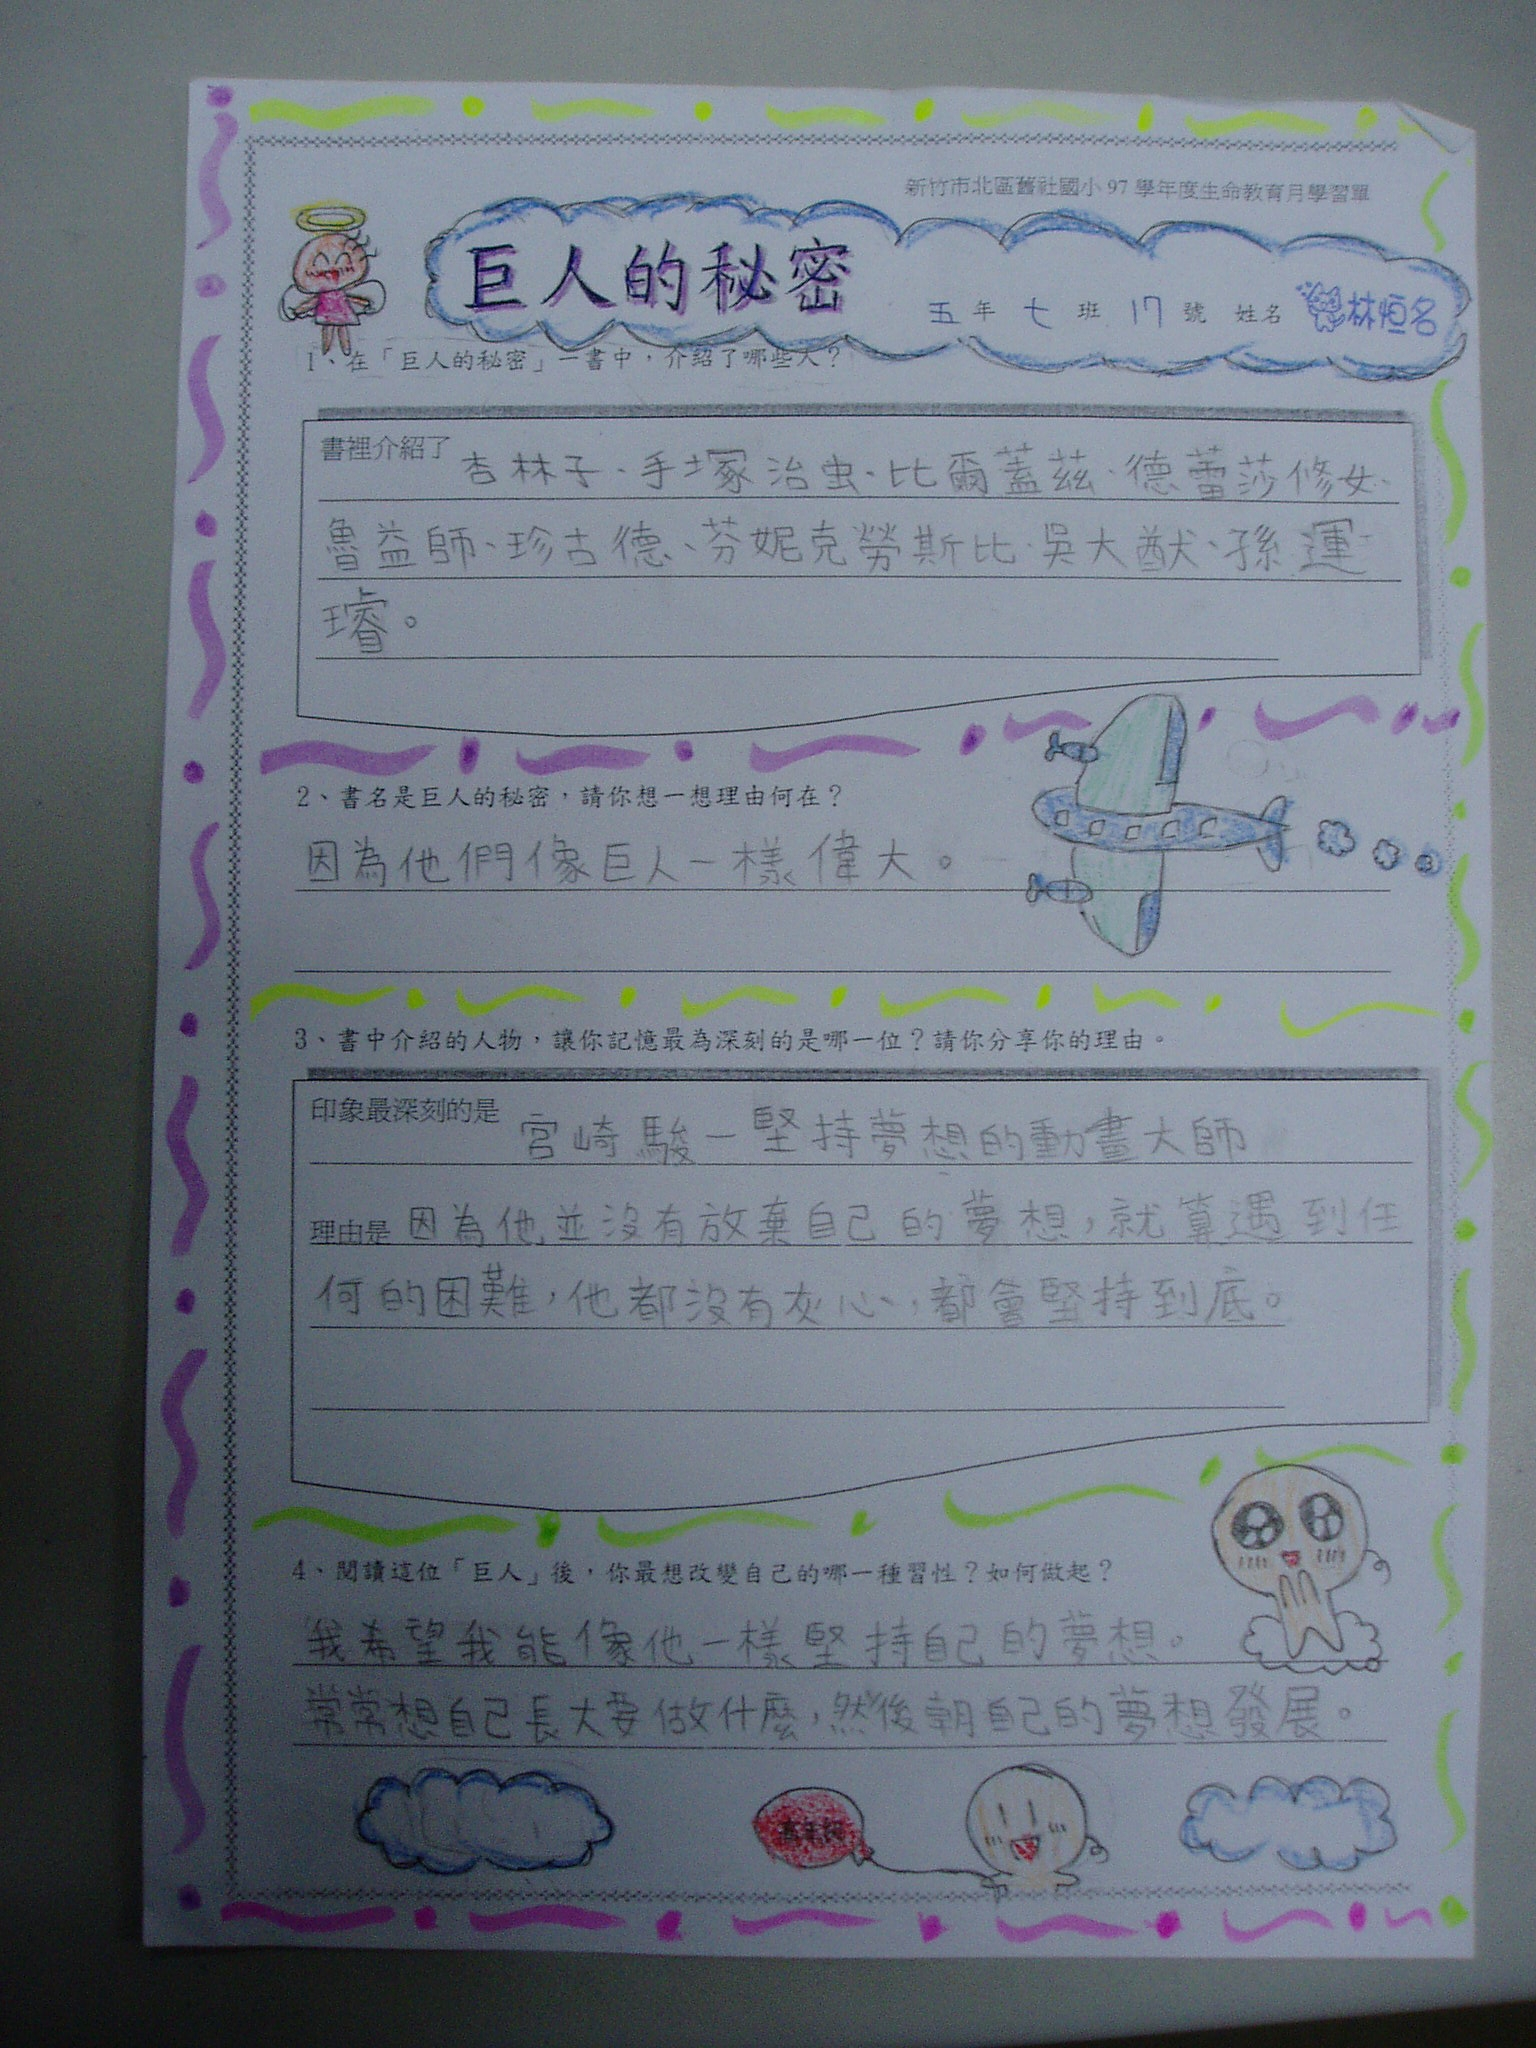 新竹市北區舊社國小 97 學年度生命教育月學習單
巨人的秘密
五 年 七 班 17 號 姓名 林恒名
1、在「巨人的秘密」一書中，介紹了哪些人？
書裡介紹了 杏林子、手塚治虫、比爾蓋茲、德蕾莎修女、
魯益師、珍古德、芬妮克勞斯比、吳大猷、孫運
璿。
2、書名是巨人的秘密，請你想一想理由何在？
因為他們像巨人一樣偉大。
3、書中介紹的人物，讓你記憶最為深刻的是哪一位？請你分享你的理由。
印象最深刻的是 宮崎駿－堅持夢想的動畫大師
理由是 因為他並沒有放棄自己的夢想，就算遇到任
何的困難，他都沒有灰心，都會堅持到底。
4、閱讀這位「巨人」後，你最想改變自己的哪一種習性？如何做起？
我希望我能像他一樣堅持自己的夢想。
常常想自己長大要做什麼，然後朝自己的夢想發展。